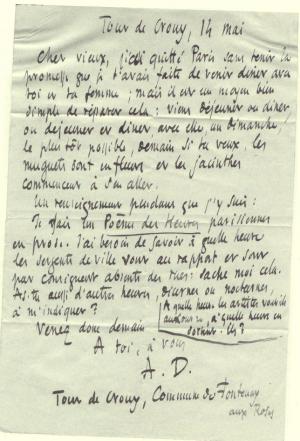 Tour de Crouy, 14 mai
Cher vieux, j'ai quitté Paris sans tenir la
promesse que je t'avais faite de venir dîner avec
toi et ta femme ; mais il est un moyen bien
simple de réparer cela : viens déjeuner ou dîner,
ou déjeuner et dîner, avec elle, un Dimanche,
le plus tôt possible, demain si tu veux, les
muguets sont en fleurs et les jacinthes
commencent à s'en aller.
Un renseignement pendant que j'y suis :
Je fais un Poème des Heures parisiennes
en prose. J'ai besoin de savoir à quelle heure
les sergents de ville vont au rapport et sont
par conséquent absents des rues : sache moi cela.
As-tu aussi d'autres heures, diurnes ou nocturnes,
à m'indiquer ?
A quelle heure les artistes vont-ils
, à quelle heure en
sortent-ils ?
Venez donc demain
A toi, à vous
A. D.
Tour de Crouy, Commune de Fontenay
aux Roses